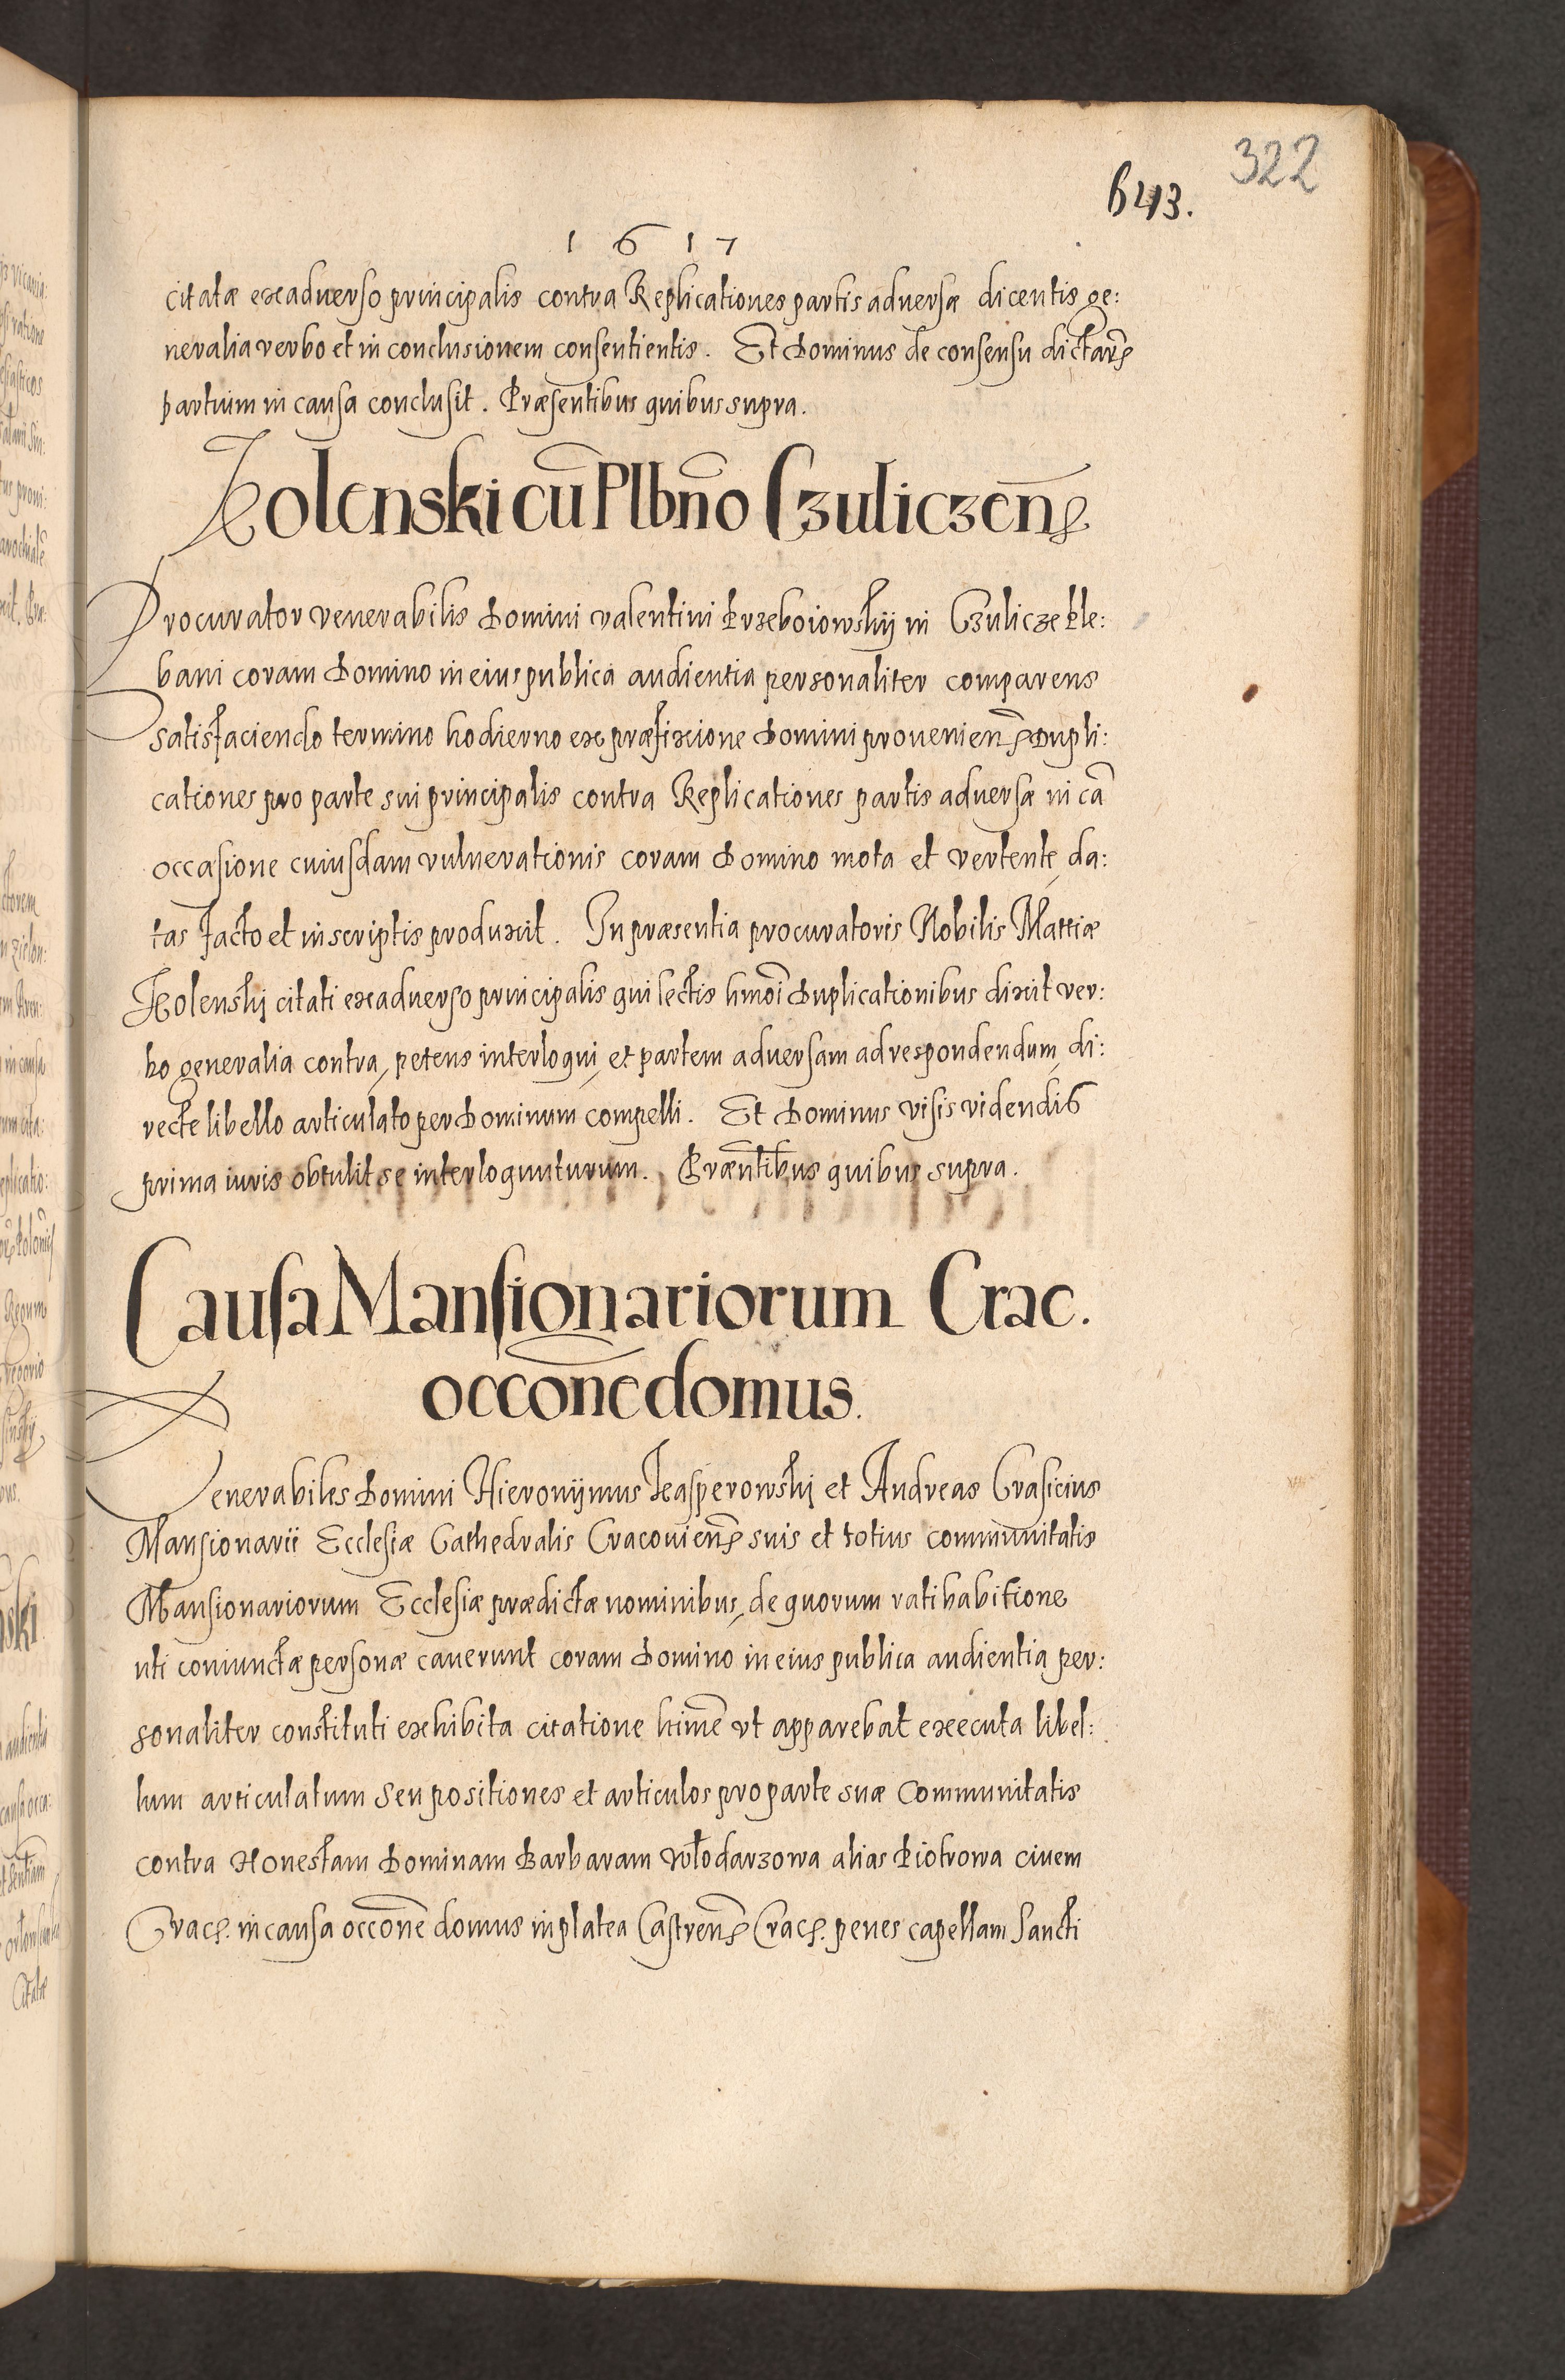 322
643.
1 6 1 7
citatæ ex adverso principalis contra Replicationes partis adversæ dicentis ge:
neralia verbo et in conclusionem consentientis. Et Dominus de consensu dictar̃
partium in causa conclusit. Præsentibus quibus supra.
Kolenski cū Plbño Czuliczeñ
Procurator venerabilis Domini Valentini Przeboiowskij in Czulicze Ple:
bani coram Domino in eius publica audientia personaliter comparens
satisfaciendo termino hodierno ex præfixione Domini provenieñ Dupli:
cationes pro parte sui principalis contra Replicationes partis adversæ in cã
occasione cuiusdam vulnerationis coram Domino mota et vertente, da:
tas facto et in scriptis produxit. In præsentia procuratoris Nobilis Mattiæ
Kolenskij citati ex adverso principalis qui lectis hmõi Duplicationibus dixit ver:
bo generalia contra, petens interloqui, et partem adversam ad respondendum, di:
recte libello articulato per Dominum compelli. Et Dominus visis videndis
prima iuris obtulit se interloquuturum. Præntibus quibus supra.
Causa Mansionariorum Crac.
occōne domus.
Venerabiles Domini Hieronijmus Kasperowskij et Andreas Crasicius
Mansionarii Ecclesiæ Cathedralis Cracovieñ suis et totius communitatis
Mansionariorum Ecclesiæ prædictæ nominibus, de quorum ratihabitione
uti coniunctæ personæ caverunt coram Domino in eius publica audientia per:
sonaliter constituti exhibita citatione hinc̃ ut apparebat executa libel:
lum articulatum seu positiones et articulos pro parte suæ Communitatis
contra Honestam Dominam Barbaram Włodarzowa alias Piotrowa civem
Crac. in causa occōne domus in platea Castreñ Crac. penes capellam Sancti